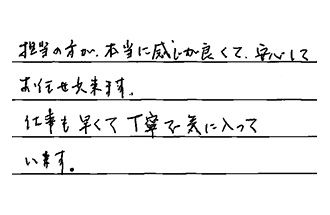 担当の方が、本当に感じが良くて、安心して
お任せ出来ます。
仕事も早くて丁寧で気に入って
います。